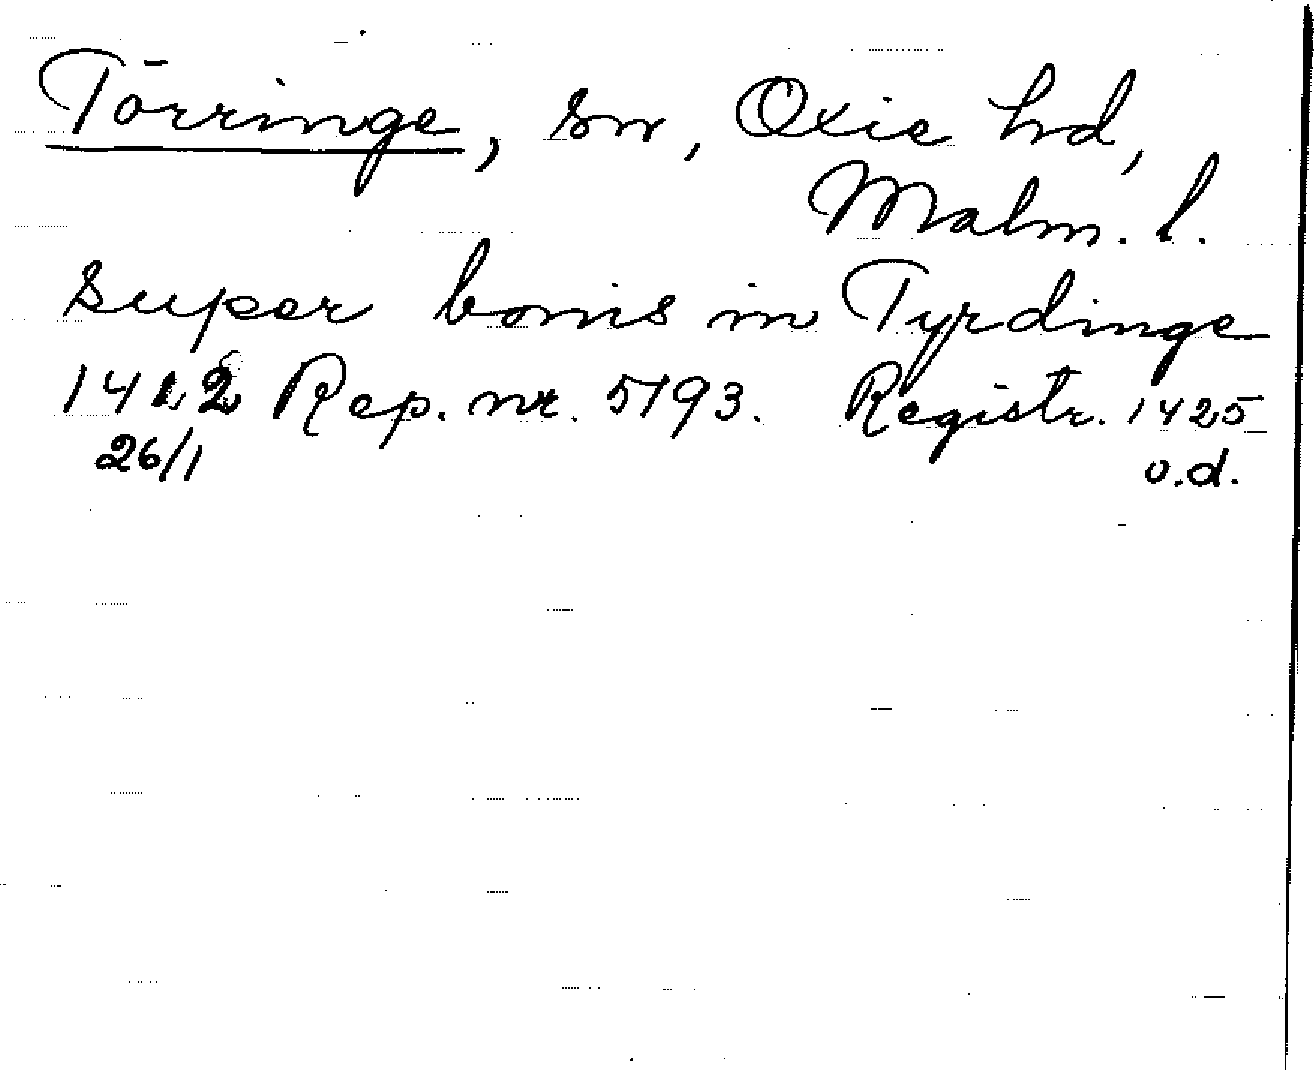 Törringe, sn, Oxie hd,
Malm. l.
super bonis in Tyrdinge
1422 Rep. nr. 5193. Registr. 1425
26/1 o.d.